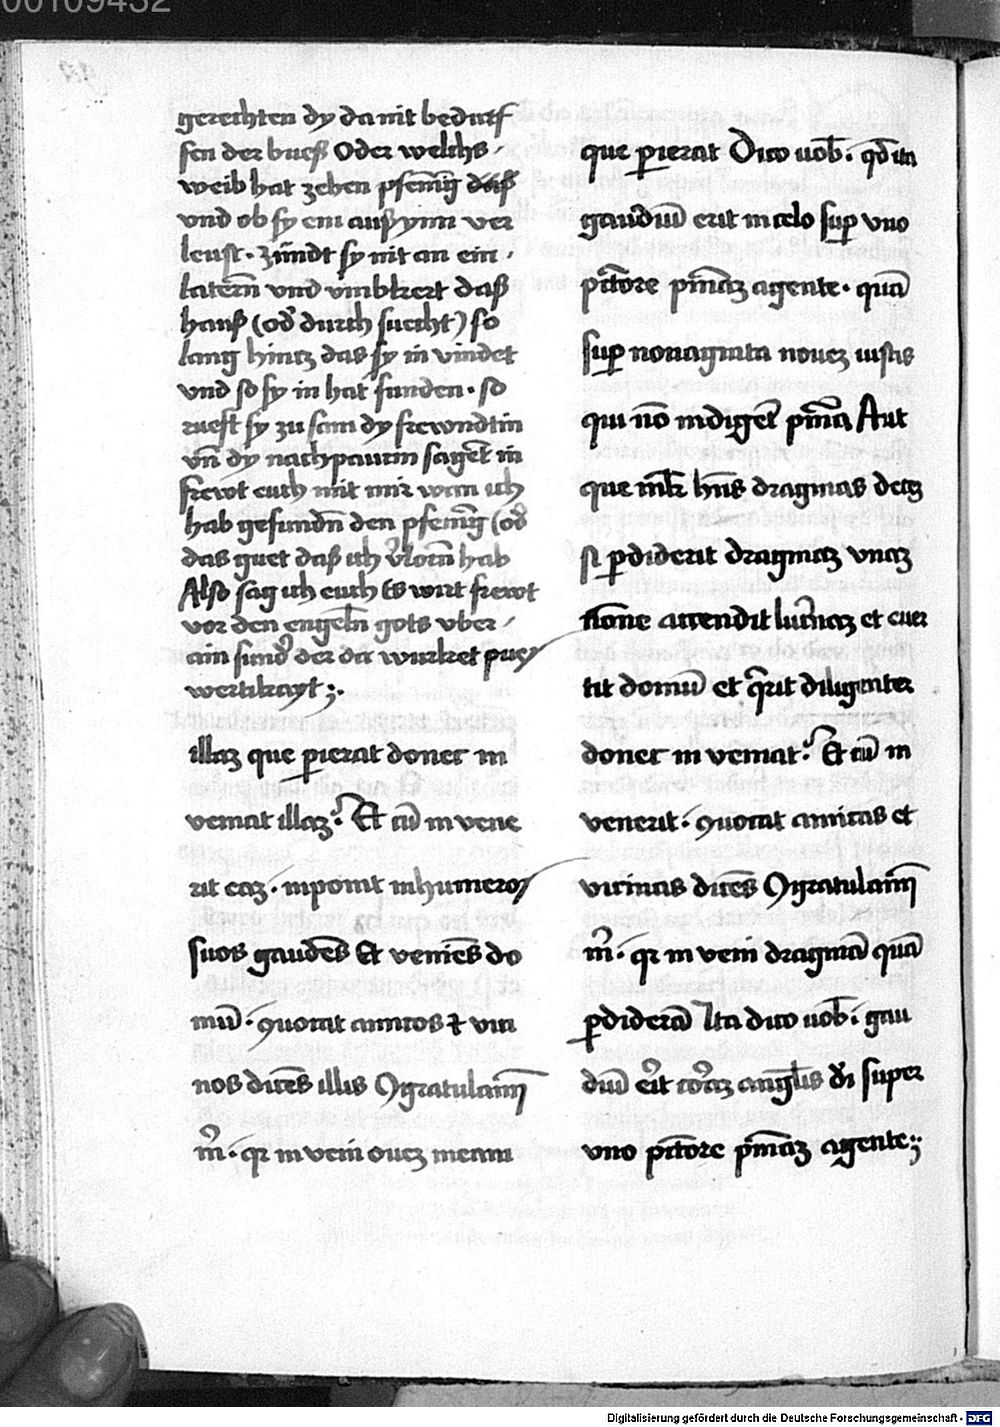 00109432
gerechten dy da nit bedurf
fen der bueß Oder welichs
weib hat zehen pfenīg
vnd ob sy ein auß ynn ver
leust · zündt sy nit an ein
latern̄ vnd vmbkert daß
hauß (od̾ durch suecht) so
lang hintz das sy in vindet
vnd so sy in hat funden · so
rueft sy zu sam dy frewndtin
vn̄ dy nachpaurin sagēt in
frewt euch mit mir wan ich
hab gefundn̄ den pfennīg (od̾
das guet daß ich v̾lorn̄ hab
Also sag ich euch Es wirt frewt
vor den engeln̄ gots vber
ain sund̾ der da wurket puez
wertikayt ;·
illaꝫ que ꝑierat donec in
veniat illaꝫ ·̓ Et cū in vene
rit eaꝫ · inponit in humeros
suos gaudēs Et veniēs do
mū · ꝯuocat amicos ⁊ vici
nos dicēs illis Ꝯgratulamī
m̄ · qꝛ in veni oueꝫ meam
que ꝑierat Dico uob̄ · qd̄ ita
gaudiū erit in celo suꝑ vno
pc̄tore pn̄iaꝫ agente · quā
suꝑ nonaginta noueꝫ iustis
qui nō indigēt pn̄ia Aut
que ml̄r hn̄s dragmas deceꝫ
si ꝑdiderit dragmaꝫ vnaꝫ
nōne accendit luc̄naꝫ et euer
tit domū et q̄rit diligenter
donec in veniat ·̓ Et cū in
venerit · ꝯuocat amicas et
vicinas dicēs Ꝯgratulamī
m̄ · qꝛ in veni dragmā quā
ꝑdiderā Ita dico uob̄ · gau
diū er̄it cor̄aꝫ angl̄is dī super
vno pc̄tore pn̄iaꝫ agente ;·
Digitalisierung gefördert durch die Deutsche Forschungsgemeinschaft - DFG